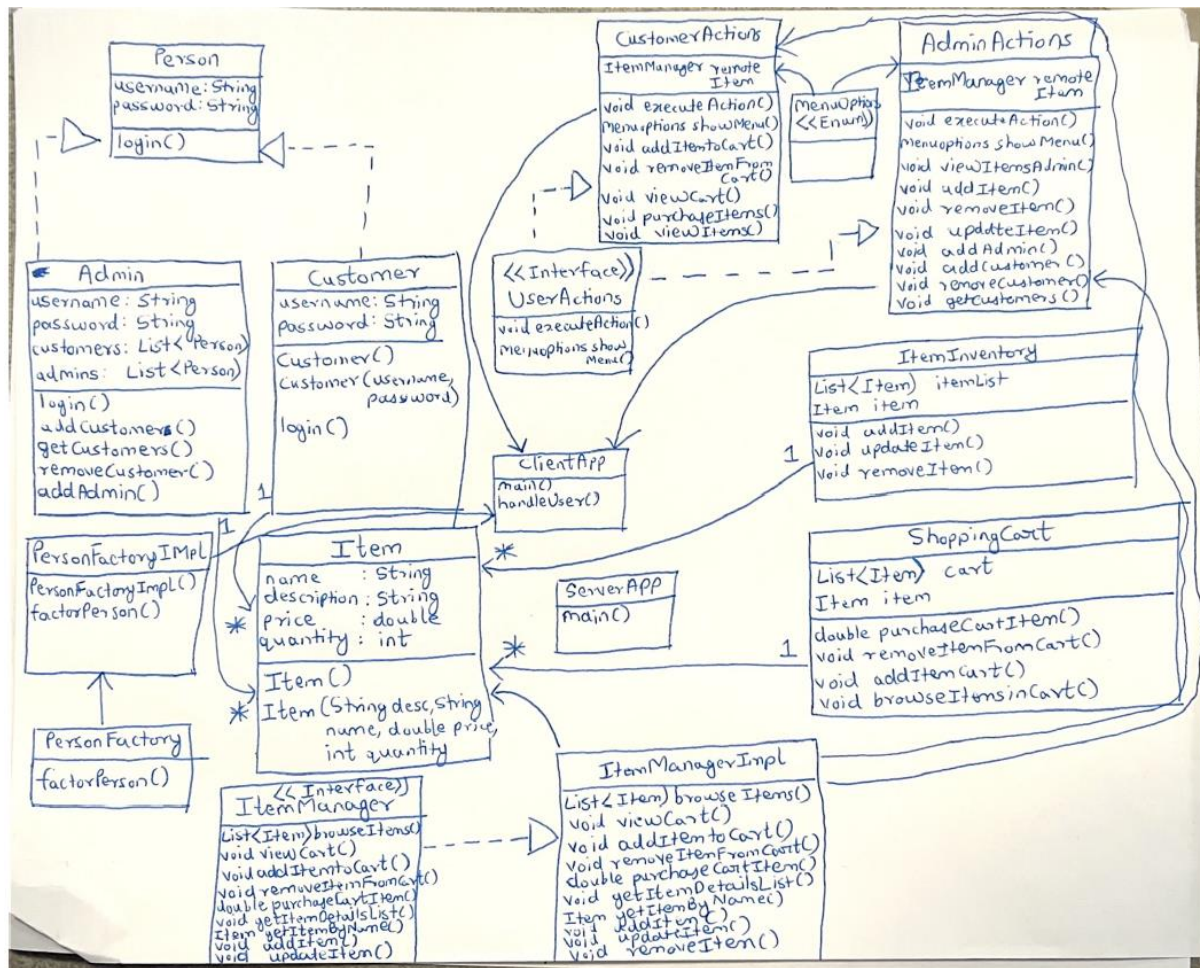 Person
username: String
password: String
login()
CustomerActions
ItemManager remote
Item
void executeAction()
menuoptions showMenu()
void addItemtoCart()
void removeItemFrom
Cart()
void viewCart()
void purchaseItems()
void viewItems()
menuOptions
<<Enum>>
AdminActions
ItemManager remote
Item
void executeAction()
menuoptions showMenu()
void viewItemsAdmin()
void addItem()
void removeItem()
void updateItem()
void addAdmin()
void addCustomer()
void removeCustomer()
void getCustomers()
Admin
username: String
password: String
customers: List<Person>
admins: List<Person>
login()
addCustomers()
getCustomers()
removeCustomer()
addAdmin()
Customer
username: String
password: String
Customer()
Customer(username,
password)
login()
<<Interface>>
UserActions
void executeAction()
menuoptions show
Menu()
ItemInventory
List<Item> itemList
Item item
void addItem()
void updateItem()
void removeItem()
ClientApp
main()
handleUser()
1
1
1
PersonFactoryIMpl
PersonFactoryImpl()
factorPerson()
Item
name : String
description : String
price : double
quantity : int
Item()
Item(String desc, String
name, double price,
int quantity
*
*
*
*
ServerAPP
main()
ShoppingCart
List<Item> cart
Item item
double purchaseCartItem()
void removeItemFromCart()
void addItemCart()
void browseItemsinCart()
1
PersonFactory
factorPerson()
<<Interface>>
ItemManager
List<Item> browseItems()
void viewCart()
void addItemtoCart()
void removeItemFromCart()
double purchaseCartItem()
void getItemDetailsList()
Item getItemByName()
void addItem()
void updateItem()
ItemManagerImpl
List<Item> browseItems()
void viewCart()
void addItemtoCart()
void removeItemFromCart()
double purchaseCartItem()
void getItemDetailsList()
Item getItemByName()
void addItem()
void updateItem()
void removeItem()